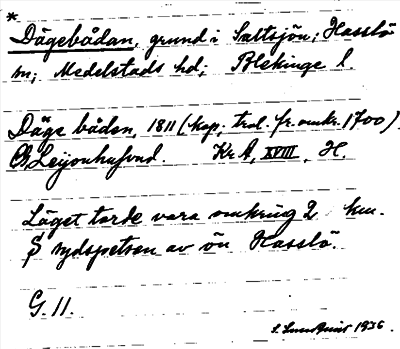 *
Dägebådan, grund i Saltsjön; Hasslö
sn; Medelstads hd; Blekinge l.
Däge bådan, 1811 (kop; trol. fr. omkr. 1700).
C. Leijonhufvud. Kr A, XVIII, H.
Läget torde vara omkring 2 km.
S sydspetsen av ön Hasslö.
G. 11.
1936.